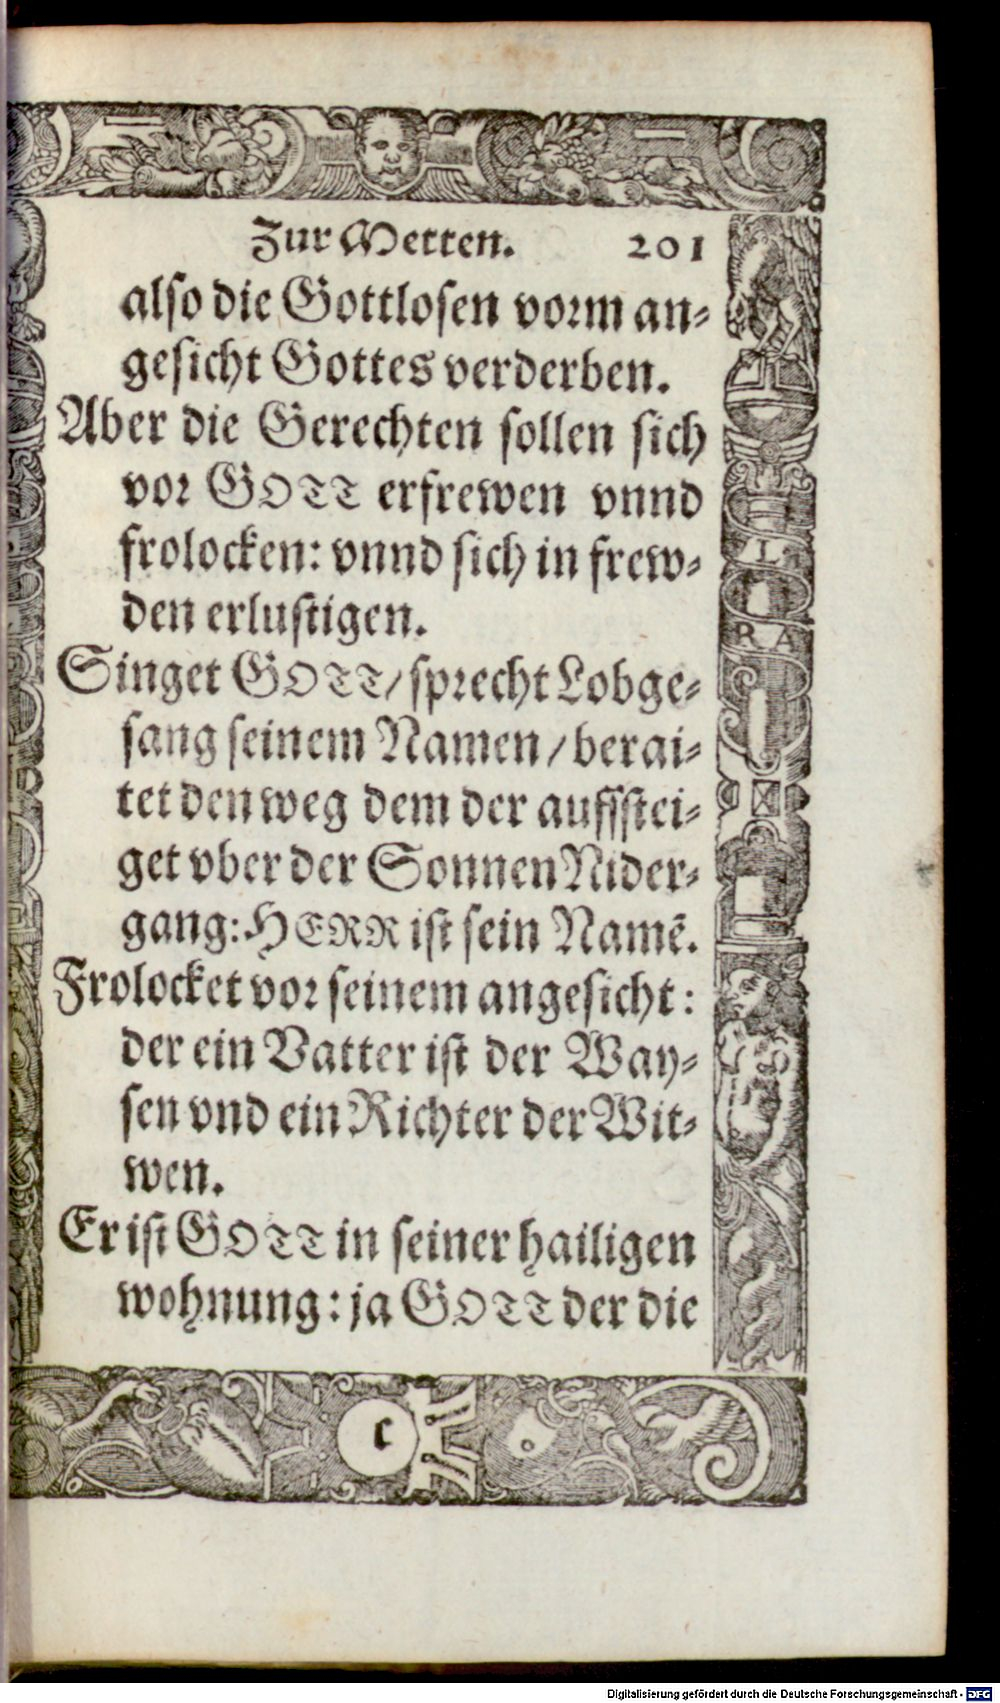 Zur Metten. 201
also die Gottlosen vorm an-
gesicht Gottes verderben.
Aber die Gerechten sollen sich
vor GOTT erfrewen vnnd
frolocken: vnnd sich in frew-
den erlustigen.
Singet GOTT/ sprecht Lobge-
sang seinem Namen/ berai-
tet den weg dem der auffstei-
get vber der Sonnen Nider-
gang: HERR ist sein Namẽ.
Frolocket vor seinem angesicht:
der ein Vatter ist der Way-
sen vnd ein Richter der Wit-
wen.
Er ist GOTT in seiner hailigen
wohnung: ja GOTT der die
L
RA
c
Digitalisierung gefördert durch die Deutsche Forschungsgemeinschaft - DFG